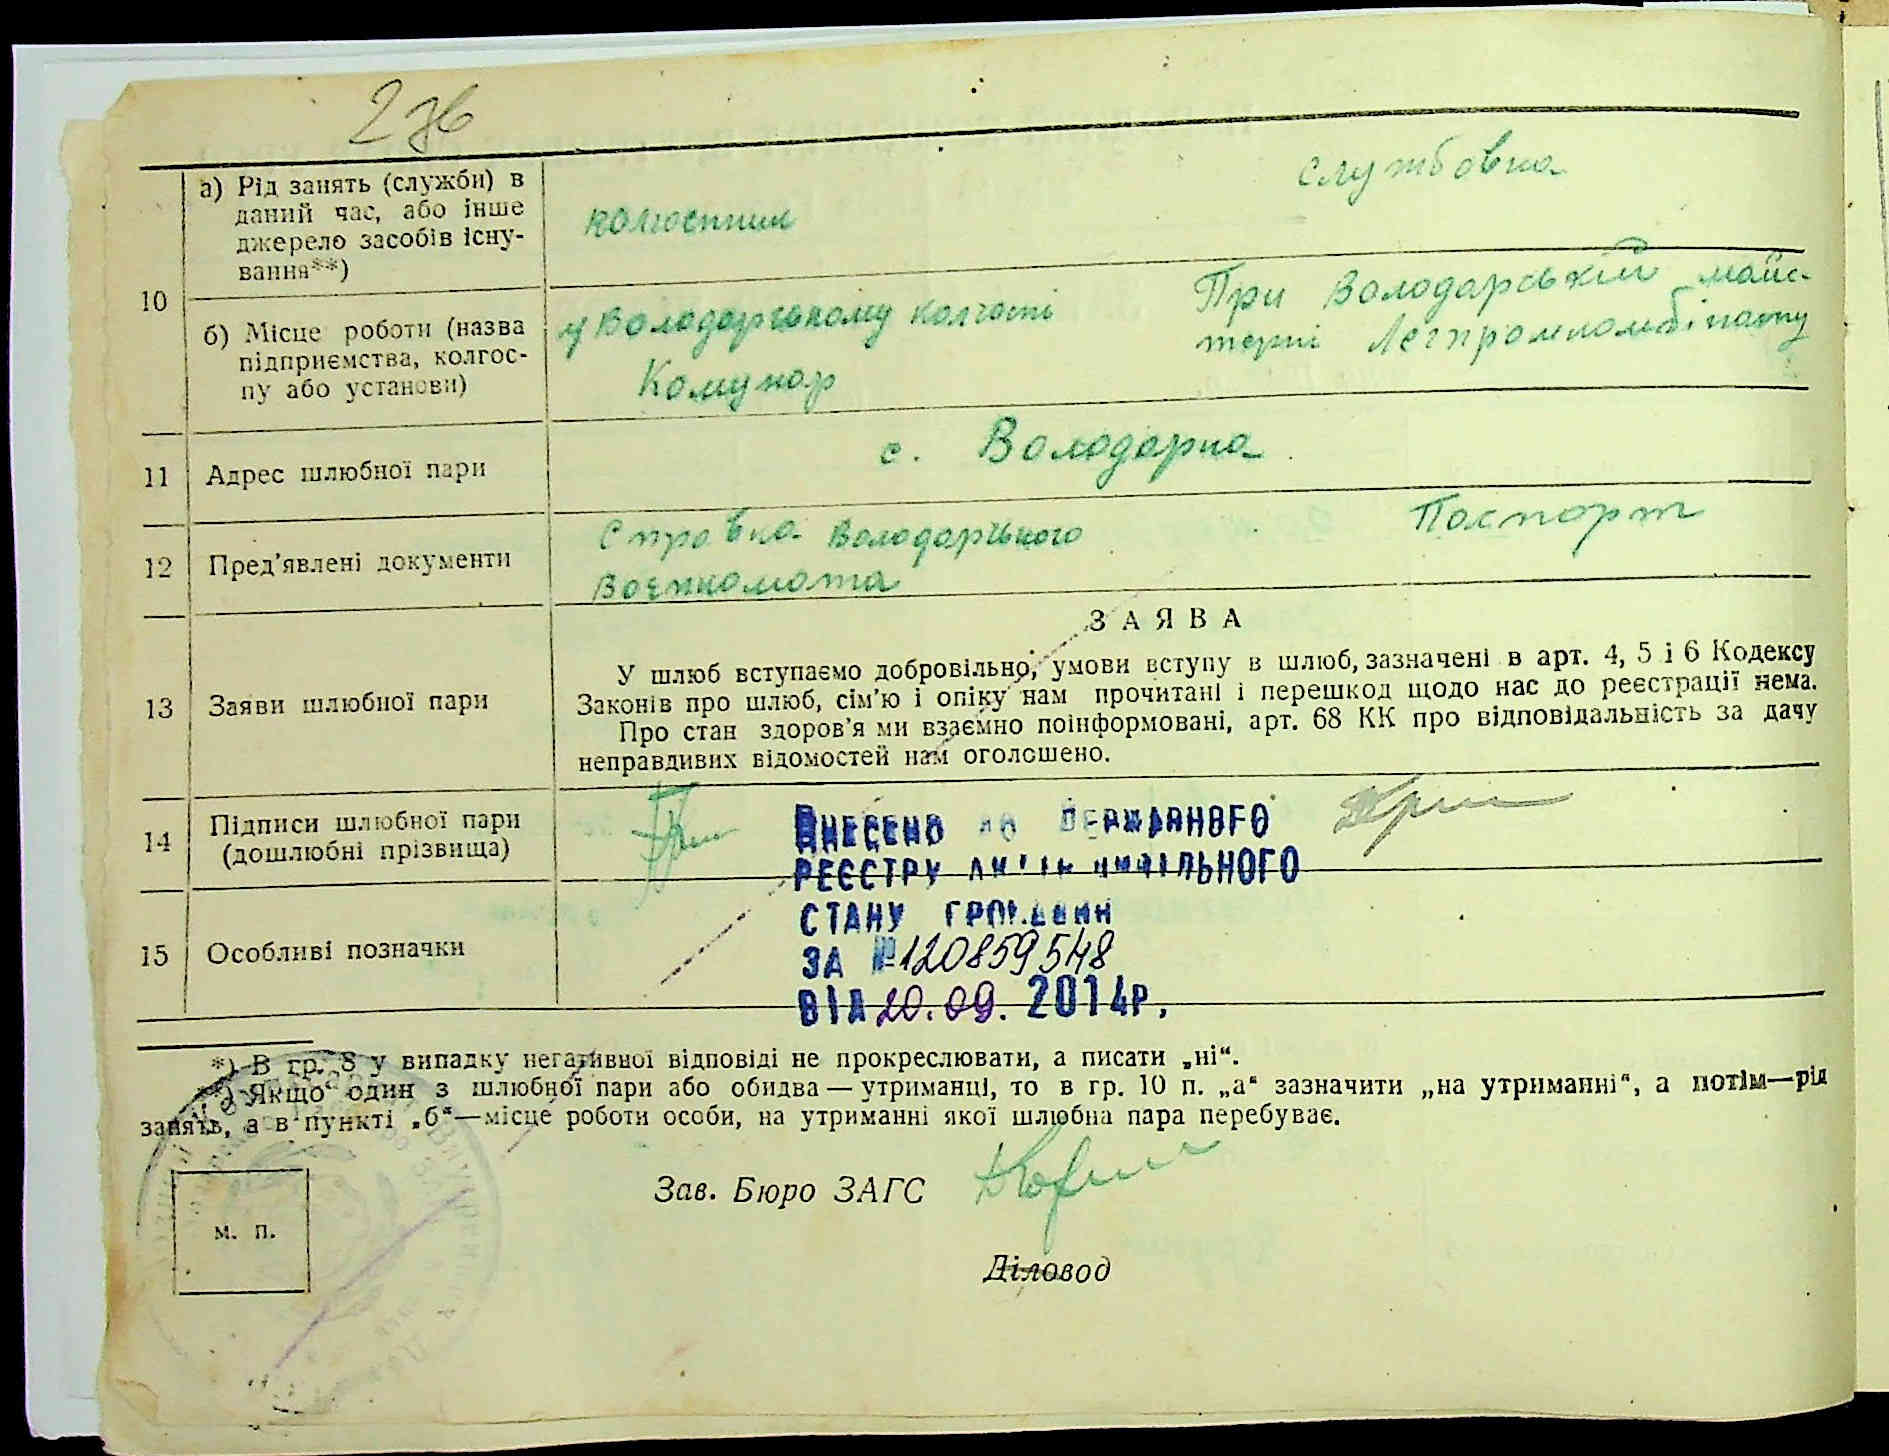 10
а) Рід занять (служби) в
даний час, або інше
джерело засобів існу-
вання**)
колгоспник
службовка
б) Місце роботи (назва
підприємства, колгос-
пу або установи)
у Володарському колгоспі
Комунар
При Володарській майс-
терні Легпромкомбінату
11
Адрес шлюбної пари
с. Володарка
12
Пред'явлені документи
Справка Володарського
Воєнкомата
Паспорт
13
Заяви шлюбної пари
ЗАЯВА
У шлюб вступаємо добровільно, умови вступу в шлюб, зазначені в арт. 4, 5 і 6 Кодексу
Законів про шлюб, сім'ю і опіку нам прочитані і перешкод щодо нас до реєстрації нема.
Про стан здоров'я ми взаємно поінформовані, арт. 68 КК про відповідальність за дачу
неправдивих відомостей нам оголошено.
14
Підписи шлюбної пари
(дошлюбні прізвища)
15
Особливі позначки
ВНЕСЕНО ДО ДЕРЖАВНОГО
РЕЄСТРУ АКТІВ ЦИВІЛЬНОГО
СТАНУ ГРОМАДЯН
ЗА № 120859548
ВІД 20.09. 2014р.
*) В гр. 8 у випадку негативної відповіді не прокреслювати, а писати „ні“.
**) Якщо один з шлюбної пари або обидва — утриманці, то в гр. 10 п. „а“ зазначити „на утриманні“, а потім—рід
занять, а в пункті „б“—місце роботи особи, на утриманні якої шлюбна пара перебуває.
Зав. Бюро ЗАГС
Діловод
м. п.